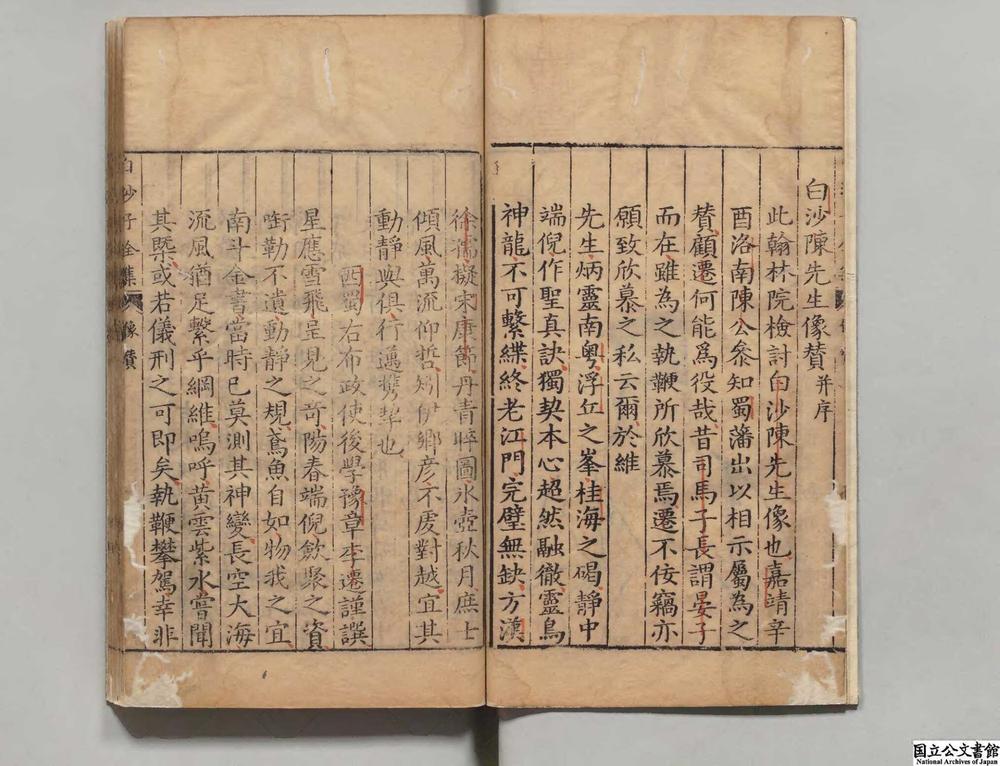 白沙陳先生像贊并序
此翰林院檢討白沙陳先生像也嘉靖辛
酉洛南陳公叅知蜀藩出以相示屬為之
賛顧遷何能爲役哉昔司馬子長謂晏子
而在雖為之執鞭所欣慕焉遷不佞竊亦
願致欣慕之私云爾於維
先生炳靈南粤浮丘之峯桂海之碣静中
端倪作聖真訣獨契本心超然融徹靈鳥
神龍不可繫緤終老江門完璧無缺方漢
徐孺擬宋康節丹青晬圖氷壺秋月庶士
傾風萬流仰哲矧伊鄉彦不處對越宜其
動靜與俱行邁携挈也
西蜀右布政使後學豫章李遷謹譔
星應雪飛呈見之竒陽春端倪歛聚之資
啣勒不遺動静之規鳶魚自如物我之宜
南斗金書當時已莫測其神變長空大海
流風猶足繫乎綱維嗚呼黄雲紫水嘗聞
其槩或若儀刑之可即矣執鞭攀駕幸非
白沙子全集
像賛
国立公文書館
National Archives of Japan